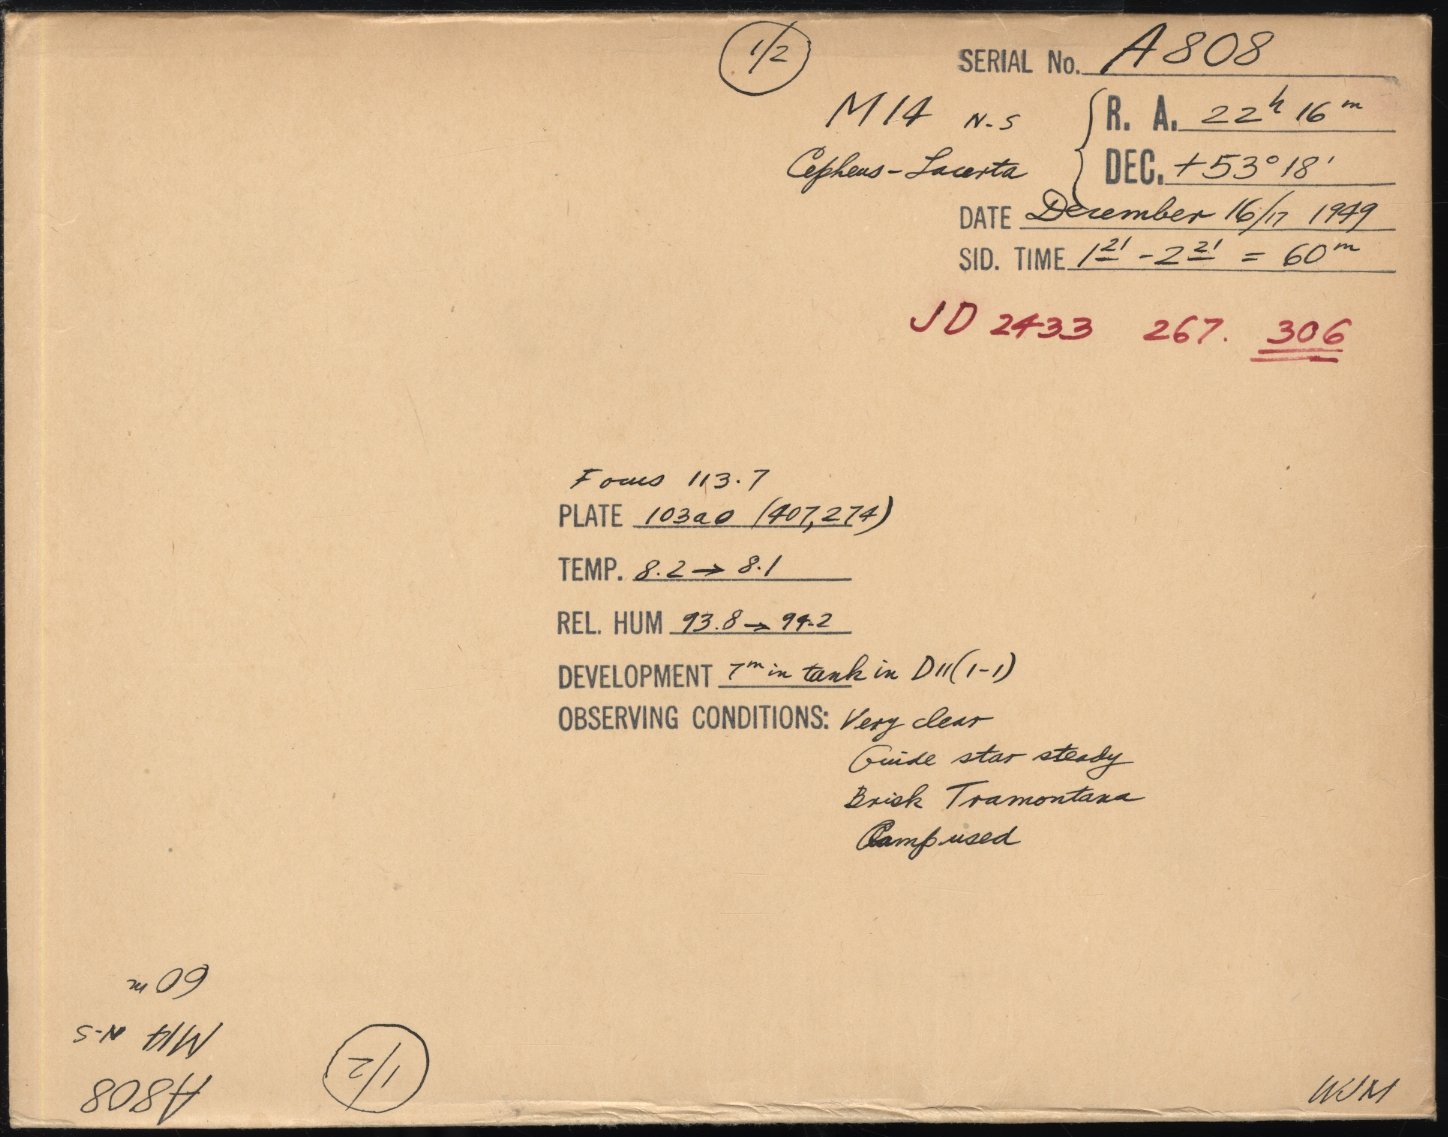 1/2
SERIAL No. A808
M14 N-S
R. A. 22h 16m
Cepheus-Lacerta
DEC. +53° 18'
DATE December 16/17 1949
SID. TIME 1 21 - 2 21 = 60m
JD 2433 267. 306
Focus 113.7
PLATE 103aO (407,274)
TEMP. 8.2 → 8.1
REL. HUM 93.8 → 94.2
DEVELOPMENT 7m in tank in D11 (1-1)
OBSERVING CONDITIONS: Very clear
Guide star steady
Brisk Tramontana
used
A808
M14 N-S
60m
1/2
WJM